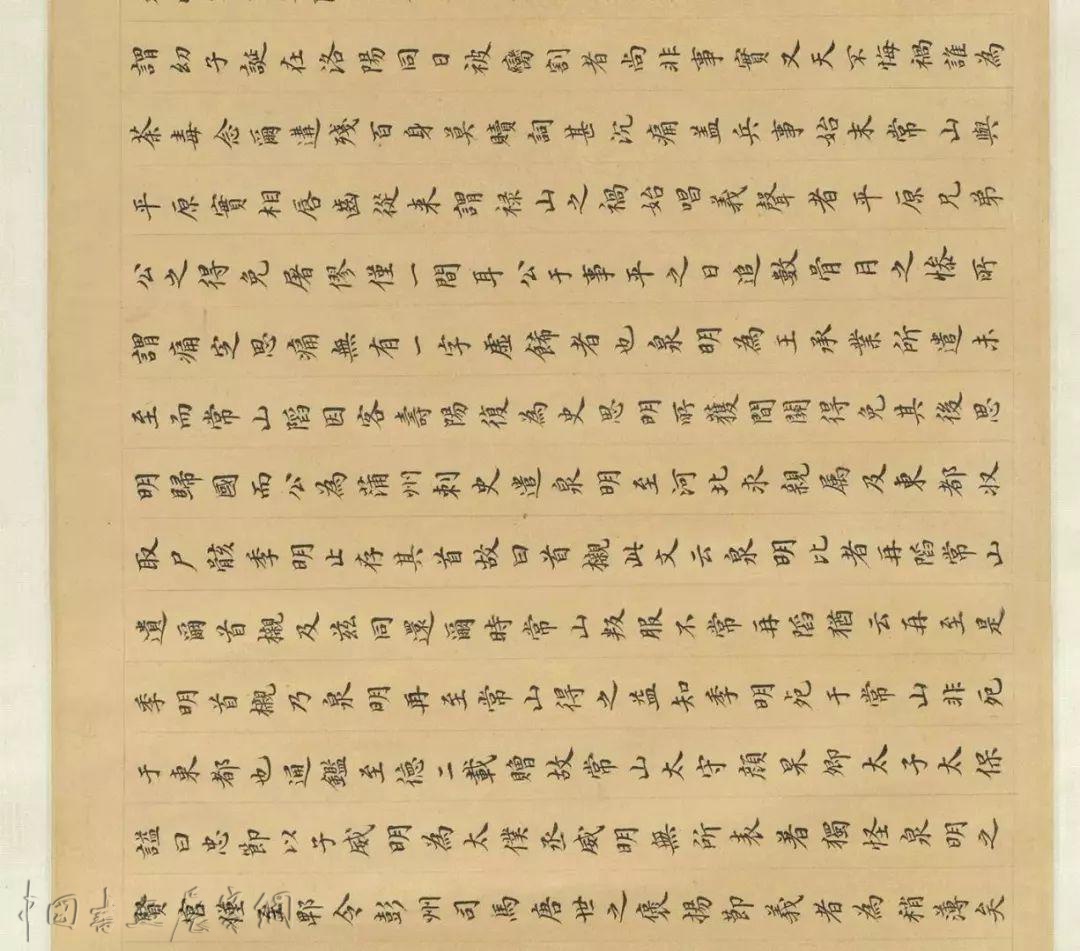 謂幼子誕在洛陽同日被臠割者尚非事實又天不悔禍誰為
荼毒念爾遘殘百身莫贖詞甚沉痛盖兵事始末常山與
平原實相唇齒從来謂祿山之禍始唱義聲者平原兄弟
公之得免屠僇僅一間耳公于事平之日追數骨肉之慘所
謂痛定思痛無有一字虛飾者也泉明為王承業所遣未
至而常山陷因客壽陽復為史思明所獲間關得免其後思
明歸國而公為蒲州刺史遣泉明至河北求親属及東都収
取尸骸季明止存其首故曰首櫬此文云泉明比者再陷常山
遺爾首櫬及兹同還爾時常山叛服不常再陷猶云再至是
季明首櫬乃泉明再至常山得之益知季明死于常山非死
于東都也通鑑至德二載贈故常山太守顏杲卿太子太保
諡曰忠節以子威明為太僕丞威明無所表著獨怪泉明之
賢僅至郫令彭州司馬唐世之褒揚節義者為稍薄矣